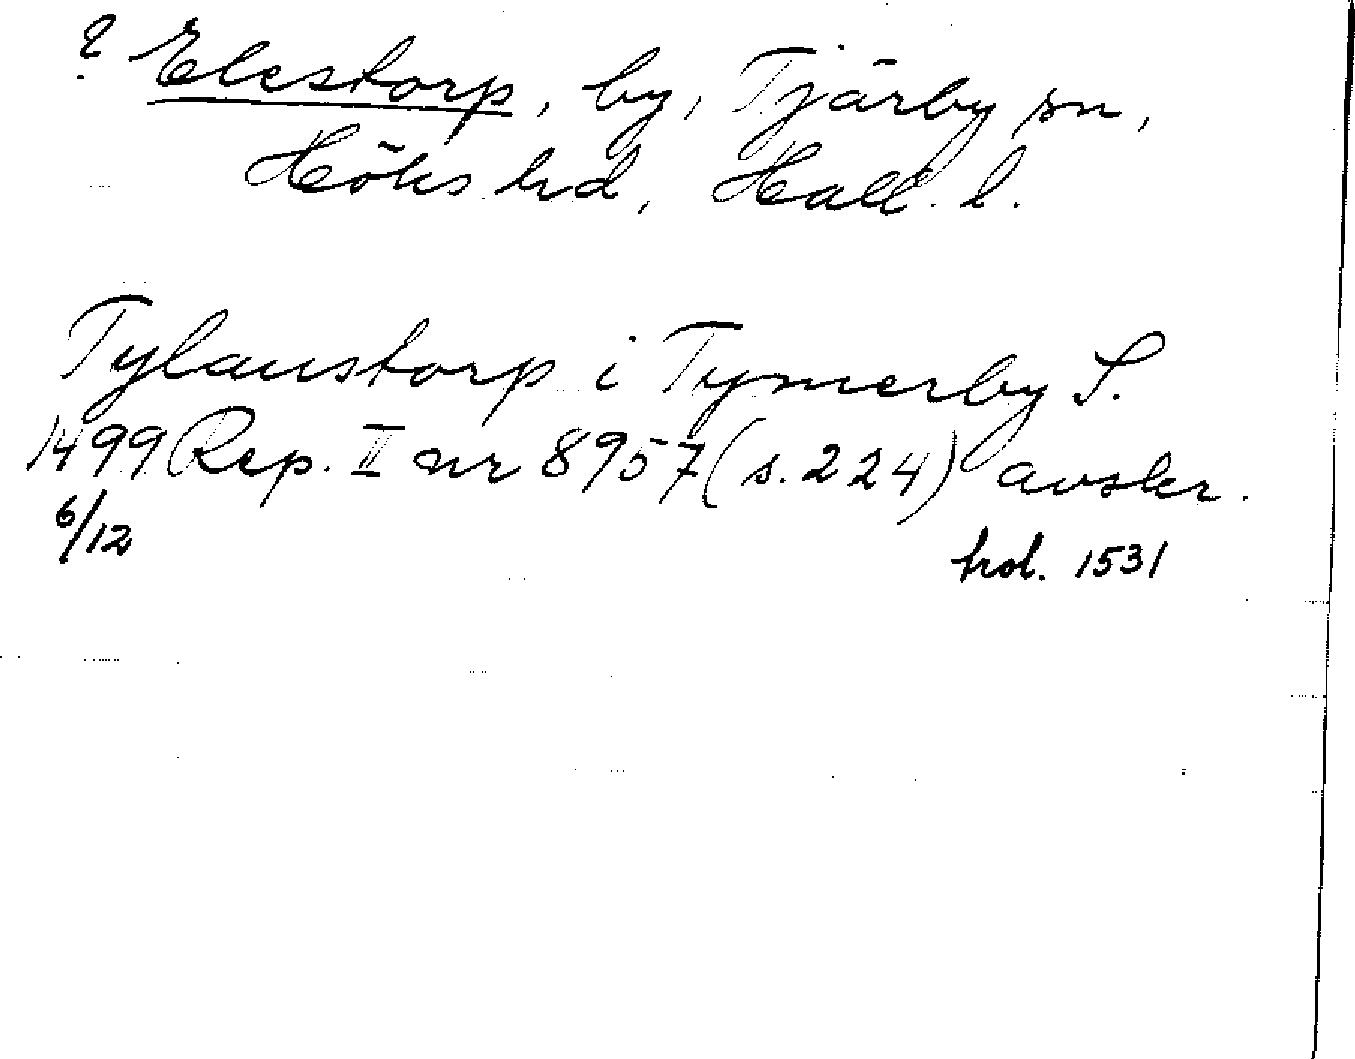 ? Elestorp, by, Tjärby sn,
Höks hd, Hall. l.
Tylaustorp i Tymerby S.
1499 Rep. II nr 8957 (s. 224) avskr.
6/12 hol. 1531